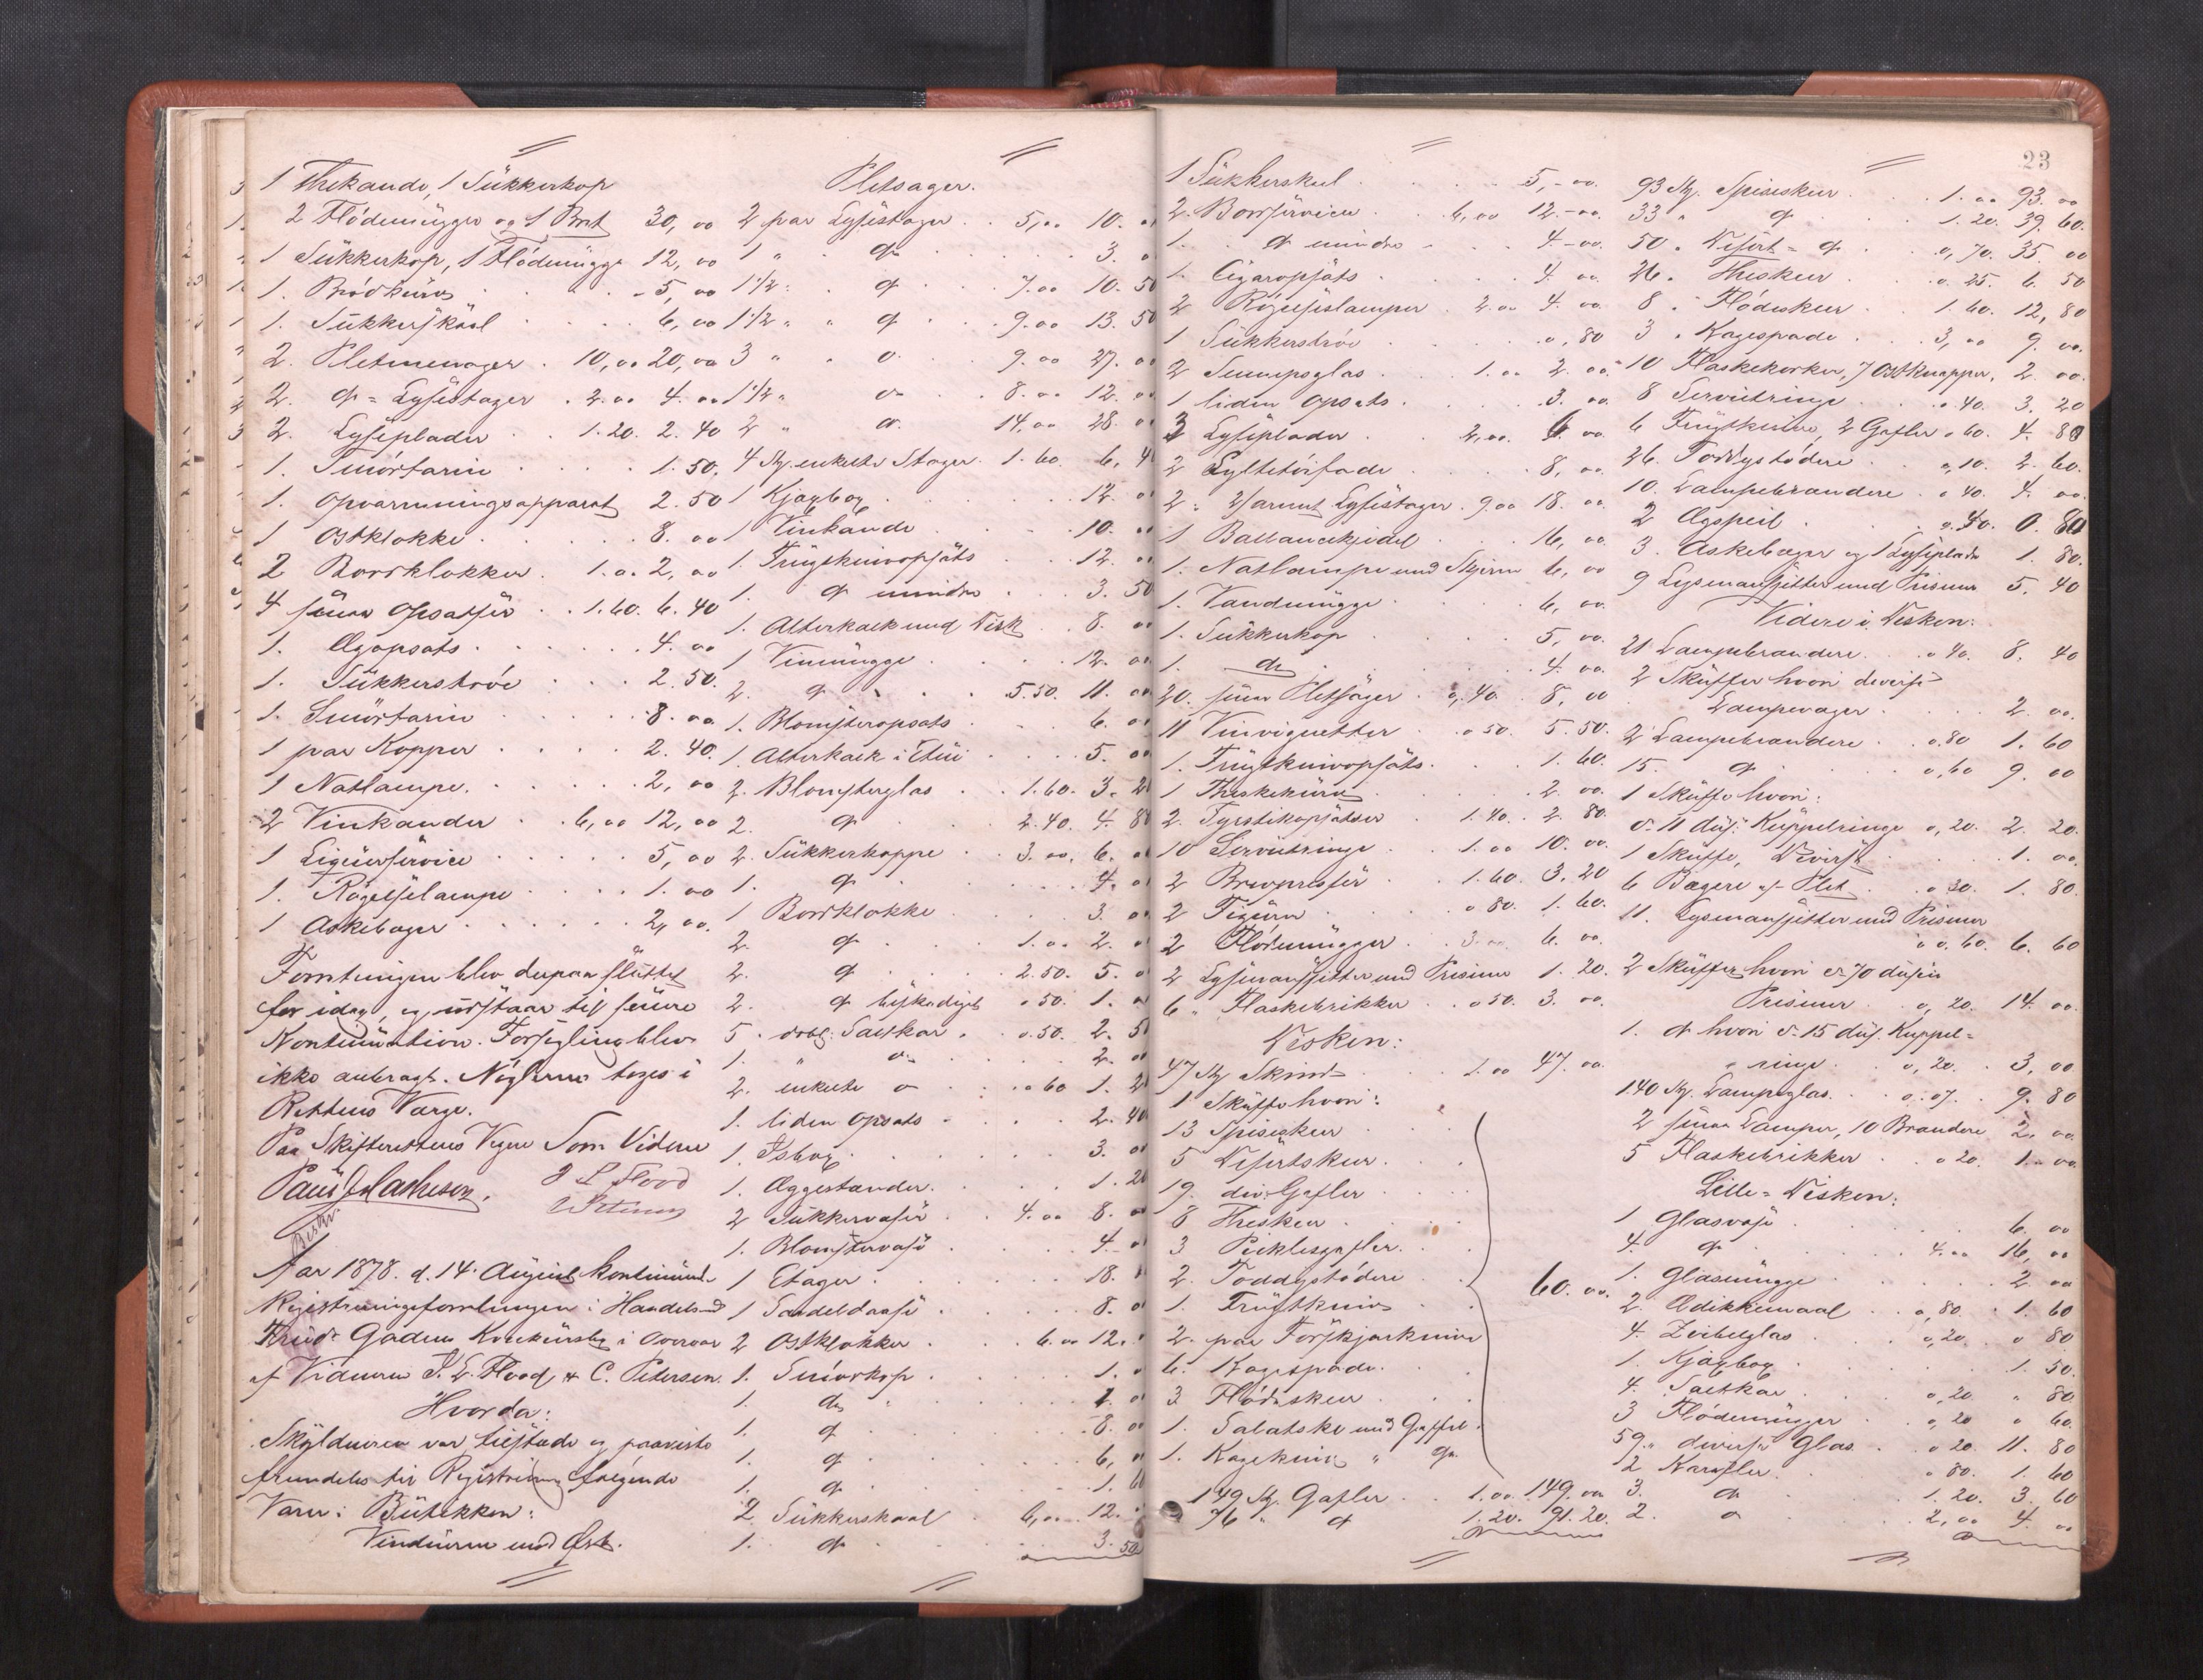 1 Thekande, 1 Sukkerkop
2 Flødemugger og 1 Bret 30, 00
1 Sukkerkop, 1 Flødemugge 12, 00
1. Brødkurv 5, 00
1. Sukkerskaal 6, 00
2. Pletmenager 10, 00 20, 00
2. do = Lysestager 2. 00 4. 00
2. Lyseplader 1. 20. 2. 40
1. Smørtarin 1. 50.
1. Opvarmningsapparat 2. 50
1 Ostklokke 8. 00
2 Bordklokker 1. 00 2, 00
4 smaa Opsatser 1. 60. 6. 40
1. Ægopsats 4. 00
1. Sukkerstrøe 2. 50.
1. Smørtarin 8. 00
1 par Kopper 2. 40.
1 Natlampe 2, 00
2 Vinkander 6, 00 12, 00
1 Liqueurservice 5, 00
1. Røgelselampe 1. 00
1 Askebæger 2, 00.
Forretningen blev derpaa sluttet
for idag, og udstaar til senere
Kontinuation. Forsegling blev
ikke anbragt. Nøglerne toges i
Rettens Værge.
Paa Skifterettens Vegne Som Vidner
Paul Matheson. J L Flood
C Petersen
Aar 1878. d. 14. August kontinueredes
Registreringsforretningen i Handelsmand
Knud Gadens Konkursbo i Overvær
af Vidnerne J. L. Flood & C. Petersen.
Hvorda:
Skyldneren var tilstede og paaviste
fremdeles til Registrering følgende
Varer i Butikken:
Vinduerne mod Øst.
Pletsager.
2 par Lysestager 5, 00 10. 00
1 " do 3. 00
1 1/2 " do 7. 00 10. 50
1 1/2 " " do 9. 00 13. 50
3 " " do 9. 00 27. 00
1 1/2 " do 8. 00 12. 00
2 " do 14, 00 28. 00
4 St. enkelte Stager 1. 60. 6, 4
1 Kjæxbox 12. 00
1 Vinkande 10. 00
1. Frugtknivopsats 12. 00
1. do mindre 3. 50
1. Alterkalk med Disk 8. 00
1 Vinmugge 12. 00
2. do 5. 50. 11. 00
1. Blomsteropsats 6. 00
1. Alterkalk i Etui 5. 00
2. Blomsterglas 1. 60. 3. 20
2. do 2. 40. 4. 80
2. Sukkerkoppe 3. 00. 6. 00
1. do 4. 0
1 Bordklokke 3. 00
2. do 1. 00 2. 0
2. do 2. 50. 5. 0
2. do beskadiget 0 50. 1. 0
5. dobl: Saltkar 0. 50. 2. 5
1. " do 2. 00
2. enkelte do 0 60 1. 2
1. liden Opsats 2. 40
1. Isbox 3. 00
1. Æggestander 1. 20
2 Sukkervaser 4. 00 8. 00
1. Blomstervase 4. 0
1 Etager 18.
1 Sandeldaase 8. 0
2 Ostklokker 6. 00 12.
1. Smørkop 1.
1. do 1. 0
1. do 8. 00
1. do 6,
1. do 1. 60
2. Sukkerskaal 6, 00 12.
1. do 3. 50
23
1 Sukkerskeel 5, - 00.
2. Bordservicer 6, 00 12. - 00.
1. do mindre 4. - 00.
1. Cigaropsats 4. 00
2 Røgelselamper 2. 00 4. 00.
1 Sukkerstrøe 0, 80
2 Sennepsglas 1. 00 2. 00
1 liden Opsats 3. 00.
3 Lyseplader 2, 00. 6. 00
2 Syltetøifade 8, 00
2. 2/armet Lysestager 9. 00 18. 00
1 Ballancekjedel 16, 00
1. Natlampe med Skjerm 6, 00
1. Vandmugge 6, 00.
1. Sukkerkop 5, 00.
1. do 4. 00.
20. smaa Pletsager 0, 40. 8, 00
11 Vinviguetter 0 50. 5. 50.
1. Frugtknivopsats 1. 60.
1 Theskekurv 2. 00.
2. Fyrstikopsatser 1. 40. 2. 80.
10 Servietringe 1. 00 10. 00.
2 Brevpresser 1. 60. 3. 20
2 Figurer 0 80. 1. 60.
2 Flødemugger 3. 00 6. 00.
2 Lysemansjetter med Prismer 1. 20.
6 " Flaskebrikker 0 50. 3. 00.
Disken:
47 St. Skeer 1. 00 47. 00.
1 Skuffe hvori:
13 Spiseskeer
5 Desertskeer
19. div. Gafler
8 Theskeer
3 Picklesgafler
2. Toddystødere
1. Frugtkniv
2. par Forskjærknive
6. Kagespade
3 Flødeskeer
1. Salatske med Gaffel
1. Kagekniv " do
60. 00.
149 St. Gafler 1. 00. 149. 00
76 " do 1. 20. 91. 20.
93 St. Spiseskeer 1. 00 93. 00
33 " do 1. 20. 39. 60.
50 " Desert = do 0, 70. 35. 00
26. Theskeer 0. 25. 6. 50
8 " Flødeskeer 1. 60. 12, 80
3 " Kagespade 3, 00 9. 00.
10 Flaskekorker, 7 Ostknapper, 2. 00.
8 Servietringe 0. 40. 3. 20
6 Frugtknive, 2 Gafler 0 60. 4. 80
26. Toddystødere 0, 10. 2. 60.
10. Lampebrændere 0 40. 4. 00.
2 Ægspeil 0. 40. 0. 80
3. Askebæger og 1 Lyseplade 1. 80.
9 Lysemansjetter med Prismer 5. 40
Videre i Disken:
21 Lampebrændere 0 40. 8. 40
2 Skuffer hvori diverse
Lampevæger 2. 00.
2 Lampebrændere 0. 80 1. 60
15. do 0, 60 9. 00
1 Skuffe hvori:
c. 11 dus: Kuppelringe 0, 20. 2. 20.
1 Skuffe, Diverse 1. 00.
6 Bægere af Plet 0 30. 1. 80.
11. Lysemansjetter med Prismer
0. 60. 6. 60
2 Skuffer hvori c. 70 dusin
Prismer 0, 20. 14. 00.
1. do hvori c. 15 dus. Kuppel =
ringe 0, 20. 3, 00.
140 St. Lampeglas 0. 07. 9. 80
2 smaa Lamper, 10 Brændere 2. 00
5 Flaskebrikker 0 20. 1. 00.
Lille = Disken:
1 Glasvase 6. 00
4. do 4. 00 16, 00
1. Glasmugge 2. 00
2. Ædikkemaal 0, 80 1. 60
4. Zvibelglas 0, 20. 0 80.
1. Kjæxbox 1. 50.
4. Saltkar 0, 20 " 80
3 Flødemugger 0, 20 0 60.
59. " diverse Glas 0 20. 11. 80
2 Karafler 0 80. 1. 60
3. do 1. 20. 3. 60
2. do 2, 00 4. 00